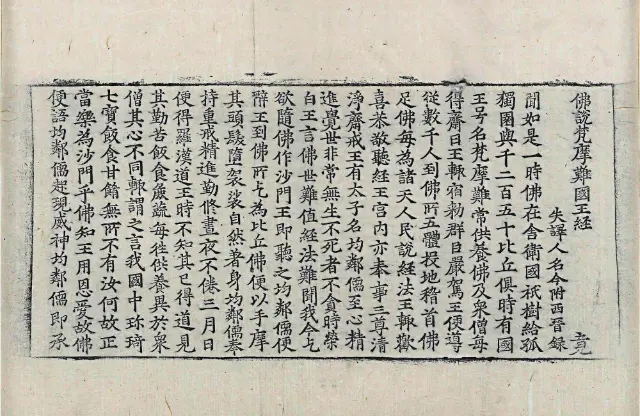 佛說梵摩難國王經
竟
失譯人名今附西晉錄
聞如是一時佛在舍衛國祇樹給孤
獨園與千二百五十比丘俱時有國
王号名梵摩難常供養佛及衆僧每
得齋日王輙宿勅群臣嚴駕王便導
從數千人到佛所五體投地稽首佛
足佛每為諸天人民說經法王輙歡
喜恭敬聽經王宮內亦奉事三尊清
淨齋戒王有太子名均鄰儒至心精
進覺世非常無生不死者不貪時榮
白王言佛世難值經法難聞我今乞
欲隨佛作沙門王即聽之均鄰儒便
辭王到佛所乞為比丘佛便以手摩
其頭髮墮袈裟自然著身均鄰儒奉
持重戒精進勤修晝夜不倦三月日
便得羅漢道王時不知其已得道見
其勤苦飯食麁蔬每往供養異於衆
僧其心不同輙謂之言我國中珎琦
七寶飯食甘餚無所不有汝何故正
當樂為沙門乎佛知王用恩愛故佛
便語均鄰儒起現威神均鄰儒即承